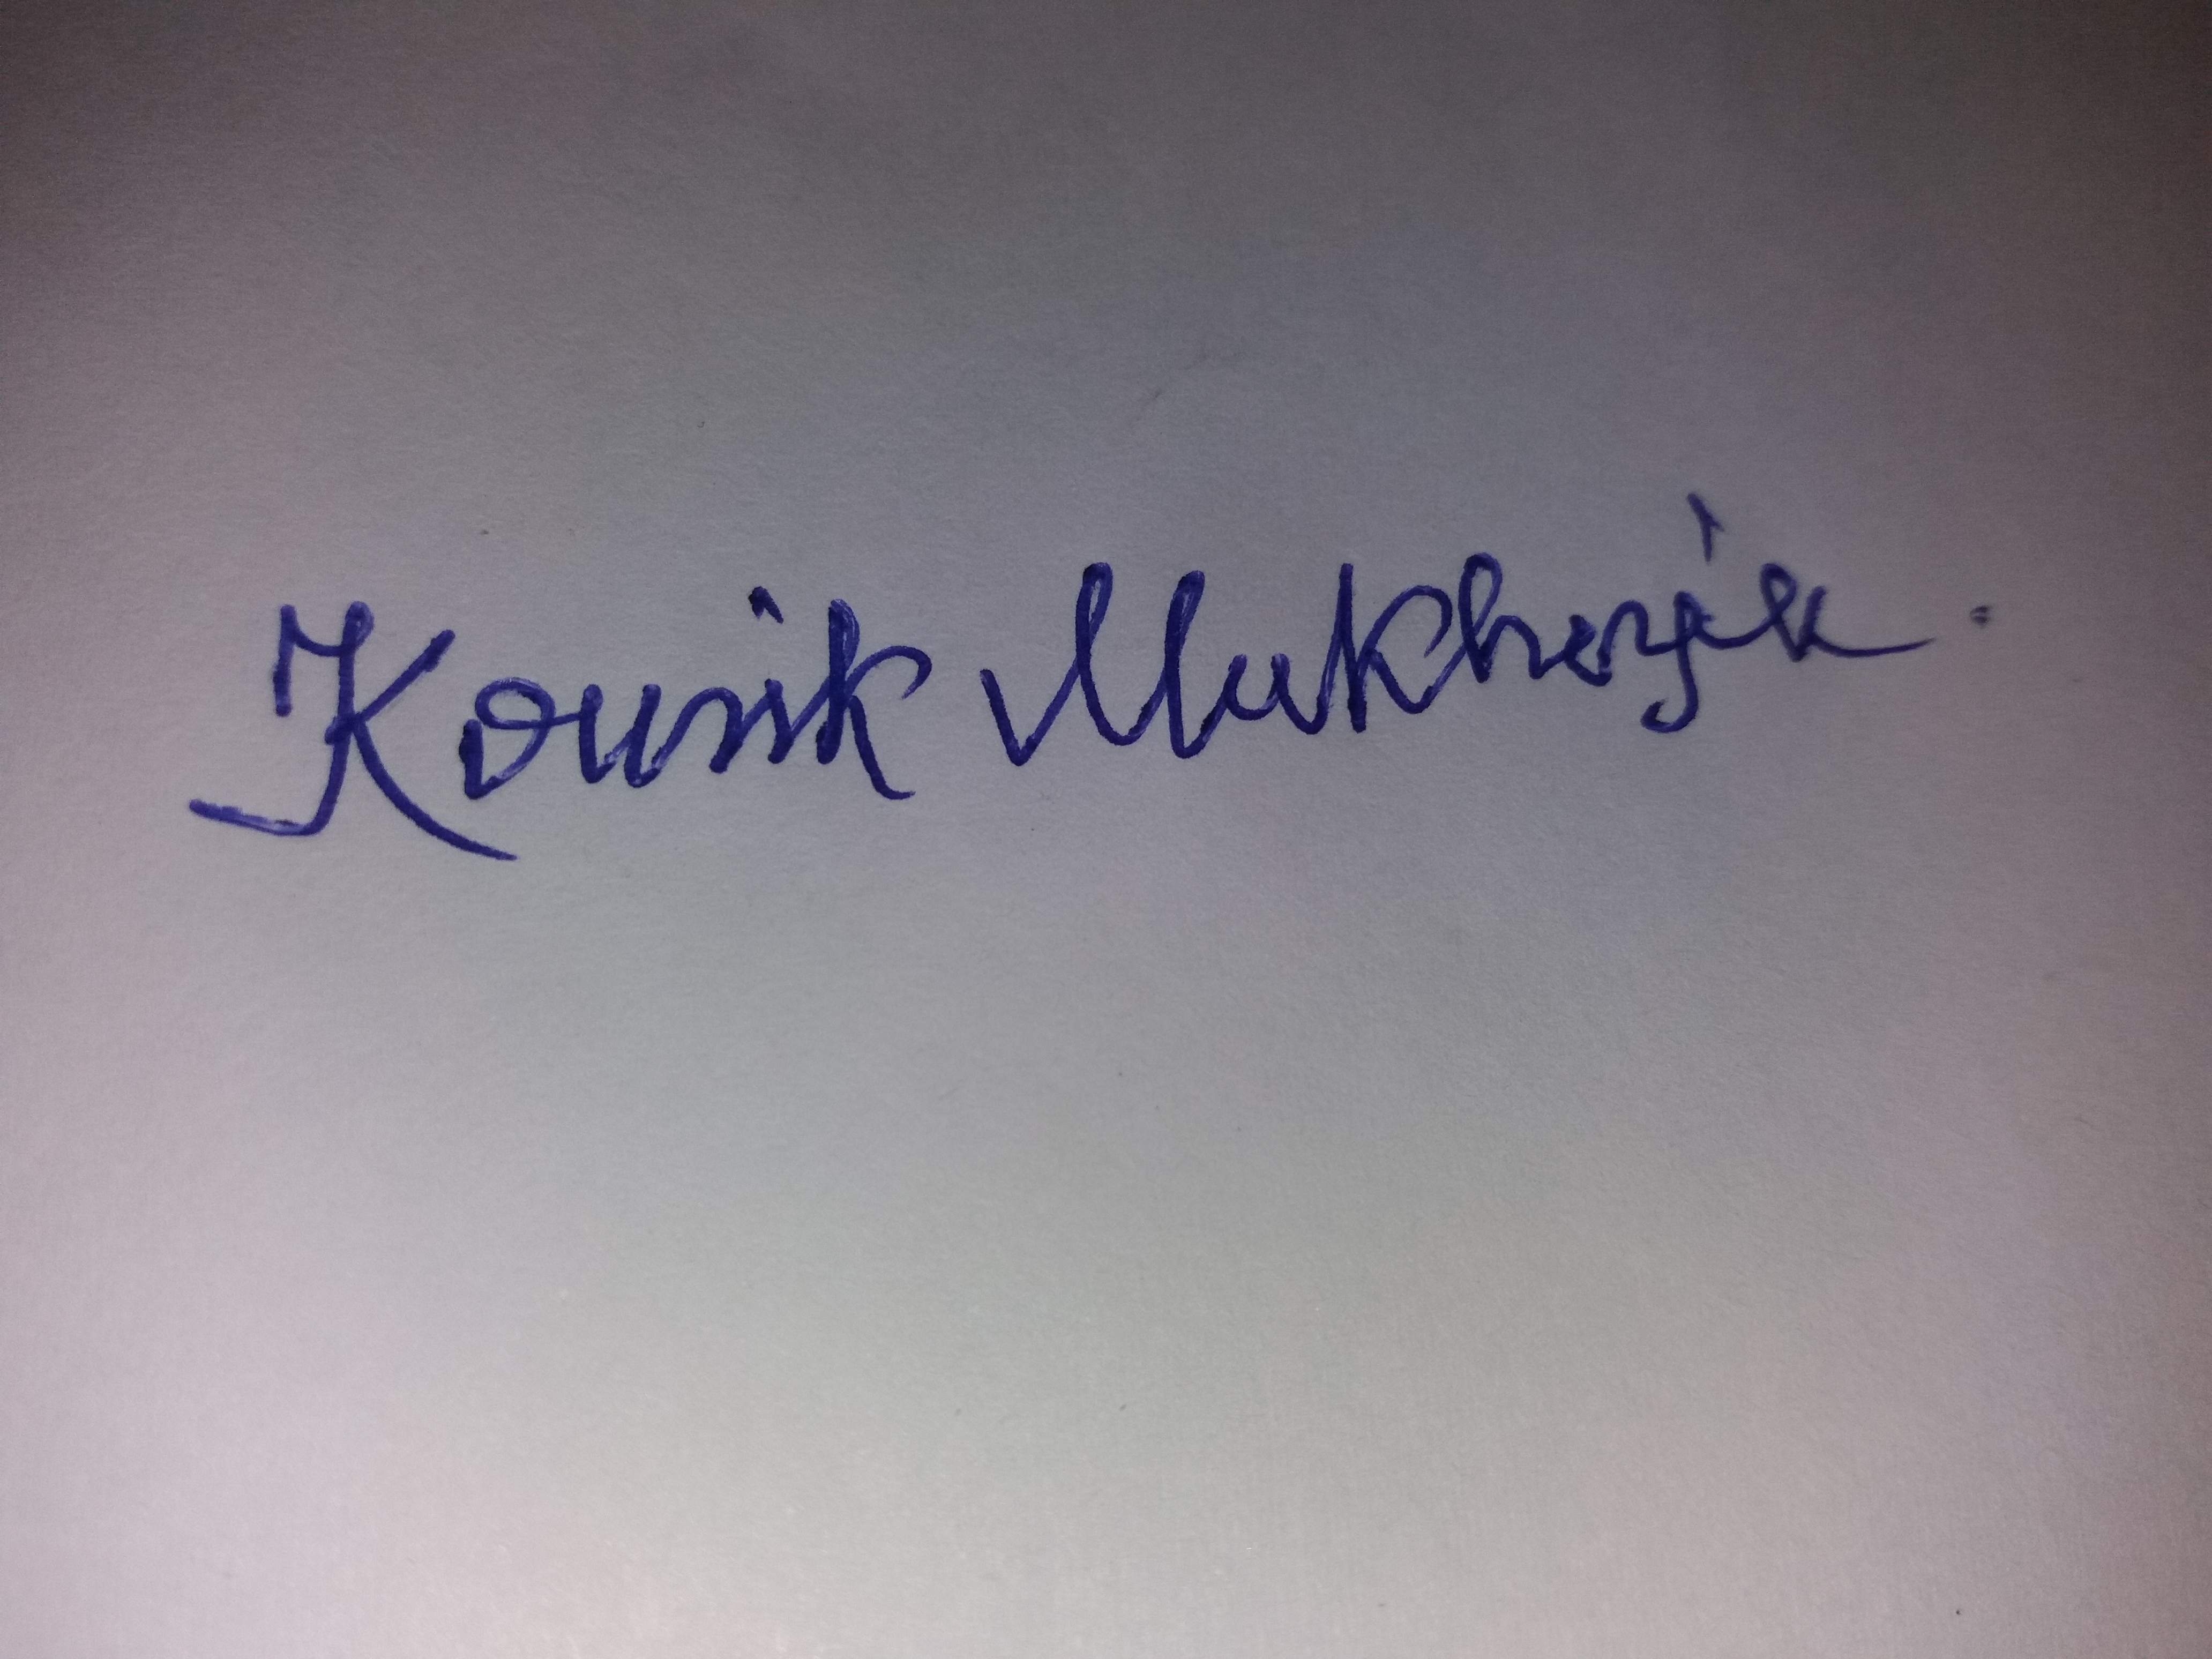 Kousik Mukherjee.